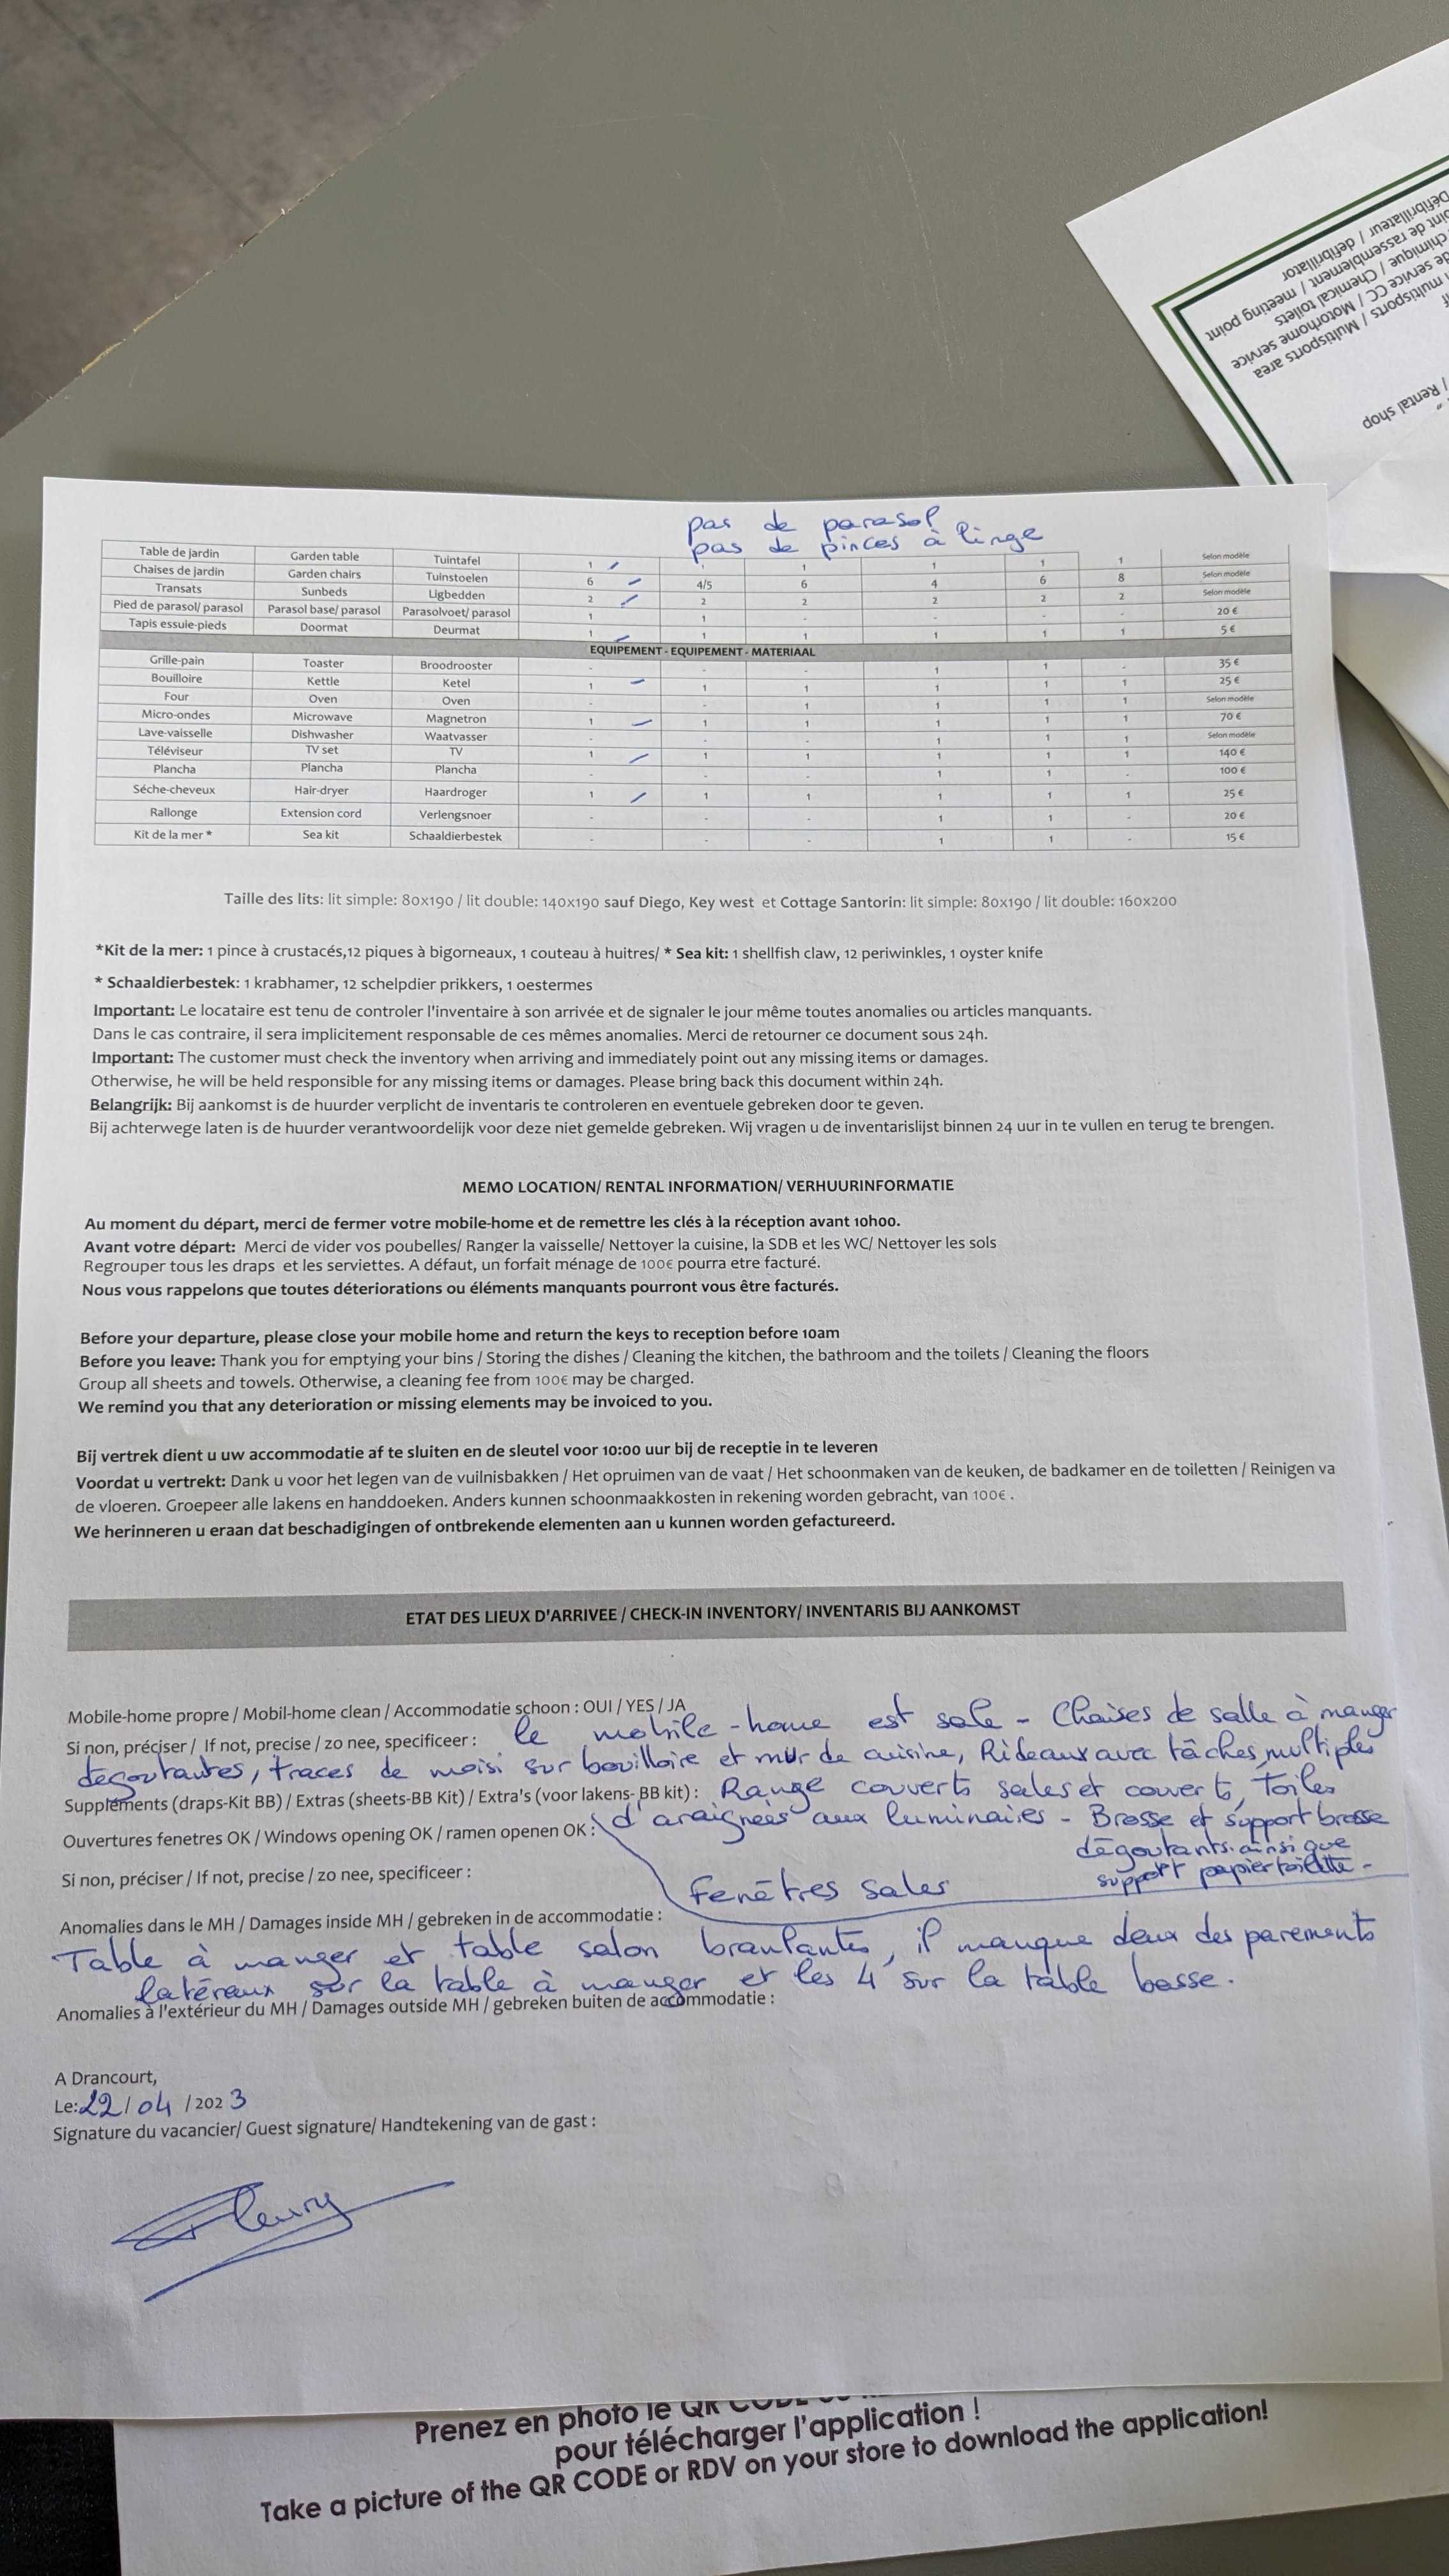 Défibrillateur / defibrillator
point de rassemblement / meeting point
chimique / Chemical toilets
de service CC / Motorhome service
multisports / Multisports area
/ Rental shop
pas de parasol
pas de pinces à linge
Table de jardin Garden table Tuintafel 1 1 1 1 1 1 Selon modèle
Chaises de jardin Garden chairs Tuinstoelen 6 4/5 6 4 6 8 Selon modèle
Transats Sunbeds Ligbedden 2 2 2 2 2 2 Selon modèle
Pied de parasol/ parasol Parasol base/ parasol Parasolvoet/ parasol 1 1 - - - - 20 €
Tapis essuie-pieds Doormat Deurmat 1 1 1 1 1 1 5 €
EQUIPEMENT - EQUIPEMENT - MATERIAAL
Grille-pain Toaster Broodrooster - - - 1 1 - 35 €
Bouilloire Kettle Ketel 1 1 1 1 1 1 25 €
Four Oven Oven - - 1 1 1 1 Selon modèle
Micro-ondes Microwave Magnetron 1 1 1 1 1 1 70 €
Lave-vaisselle Dishwasher Waatvasser - - - 1 1 1 Selon modèle
Téléviseur TV set TV 1 1 1 1 1 1 140 €
Plancha Plancha Plancha - - - 1 1 - 100 €
Séche-cheveux Hair-dryer Haardroger 1 1 1 1 1 1 25 €
Rallonge Extension cord Verlengsnoer - - - 1 1 - 20 €
Kit de la mer * Sea kit Schaaldierbestek - - - 1 1 - 15 €
Taille des lits: lit simple: 80x190 / lit double: 140x190 sauf Diego, Key west et Cottage Santorin: lit simple: 80x190 / lit double: 160x200
*Kit de la mer: 1 pince à crustacés,12 piques à bigorneaux, 1 couteau à huitres/ * Sea kit: 1 shellfish claw, 12 periwinkles, 1 oyster knife
* Schaaldierbestek: 1 krabhamer, 12 schelpdier prikkers, 1 oestermes
Important: Le locataire est tenu de controler l'inventaire à son arrivée et de signaler le jour même toutes anomalies ou articles manquants.
Dans le cas contraire, il sera implicitement responsable de ces mêmes anomalies. Merci de retourner ce document sous 24h.
Important: The customer must check the inventory when arriving and immediately point out any missing items or damages.
Otherwise, he will be held responsible for any missing items or damages. Please bring back this document within 24h.
Belangrijk: Bij aankomst is de huurder verplicht de inventaris te controleren en eventuele gebreken door te geven.
Bij achterwege laten is de huurder verantwoordelijk voor deze niet gemelde gebreken. Wij vragen u de inventarislijst binnen 24 uur in te vullen en terug te brengen.
MEMO LOCATION/ RENTAL INFORMATION/ VERHUURINFORMATIE
Au moment du départ, merci de fermer votre mobile-home et de remettre les clés à la réception avant 10h00.
Avant votre départ: Merci de vider vos poubelles/ Ranger la vaisselle/ Nettoyer la cuisine, la SDB et les WC/ Nettoyer les sols
Regrouper tous les draps et les serviettes. A défaut, un forfait ménage de 100€ pourra etre facturé.
Nous vous rappelons que toutes déteriorations ou éléments manquants pourront vous être facturés.
Before your departure, please close your mobile home and return the keys to reception before 10am
Before you leave: Thank you for emptying your bins / Storing the dishes / Cleaning the kitchen, the bathroom and the toilets / Cleaning the floors
Group all sheets and towels. Otherwise, a cleaning fee from 100€ may be charged.
We remind you that any deterioration or missing elements may be invoiced to you.
Bij vertrek dient u uw accommodatie af te sluiten en de sleutel voor 10:00 uur bij de receptie in te leveren
Voordat u vertrekt: Dank u voor het legen van de vuilnisbakken / Het opruimen van de vaat / Het schoonmaken van de keuken, de badkamer en de toiletten / Reinigen va
de vloeren. Groepeer alle lakens en handdoeken. Anders kunnen schoonmaakkosten in rekening worden gebracht, van 100€ .
We herinneren u eraan dat beschadigingen of ontbrekende elementen aan u kunnen worden gefactureerd.
ETAT DES LIEUX D'ARRIVEE / CHECK-IN INVENTORY/ INVENTARIS BIJ AANKOMST
Mobile-home propre / Mobil-home clean / Accommodatie schoon : OUI / YES / JA
Si non, préciser / If not, precise / zo nee, specificeer : le mobile-home est sale - Chaises de salle à manger
dégoutantes, traces de moisi sur bouilloire et mur de cuisine, Rideaux avec tâches multiples
Suppléments (draps-Kit BB) / Extras (sheets-BB Kit) / Extra's (voor lakens- BB kit) : Range couverts sales et couverts, Toiles
Ouvertures fenetres OK / Windows opening OK / ramen openen OK : d'araignées aux luminaires - Brosse et support brosse
dégoutants ainsi que
Si non, préciser / If not, precise / zo nee, specificeer : support papier toilette -
Fenêtres sales
Anomalies dans le MH / Damages inside MH / gebreken in de accommodatie :
Table à manger et table salon branlantes, il manque deux des parements
latéraux sur la table à manger et les 4 sur la table basse.
Anomalies à l'extérieur du MH / Damages outside MH / gebreken buiten de accommodatie :
A Drancourt,
Le: 22/ 04 /202 3
Signature du vacancier/ Guest signature/ Handtekening van de gast :
Fleury
Prenez en photo le QR CODE
pour télécharger l'application !
Take a picture of the QR CODE or RDV on your store to download the application!